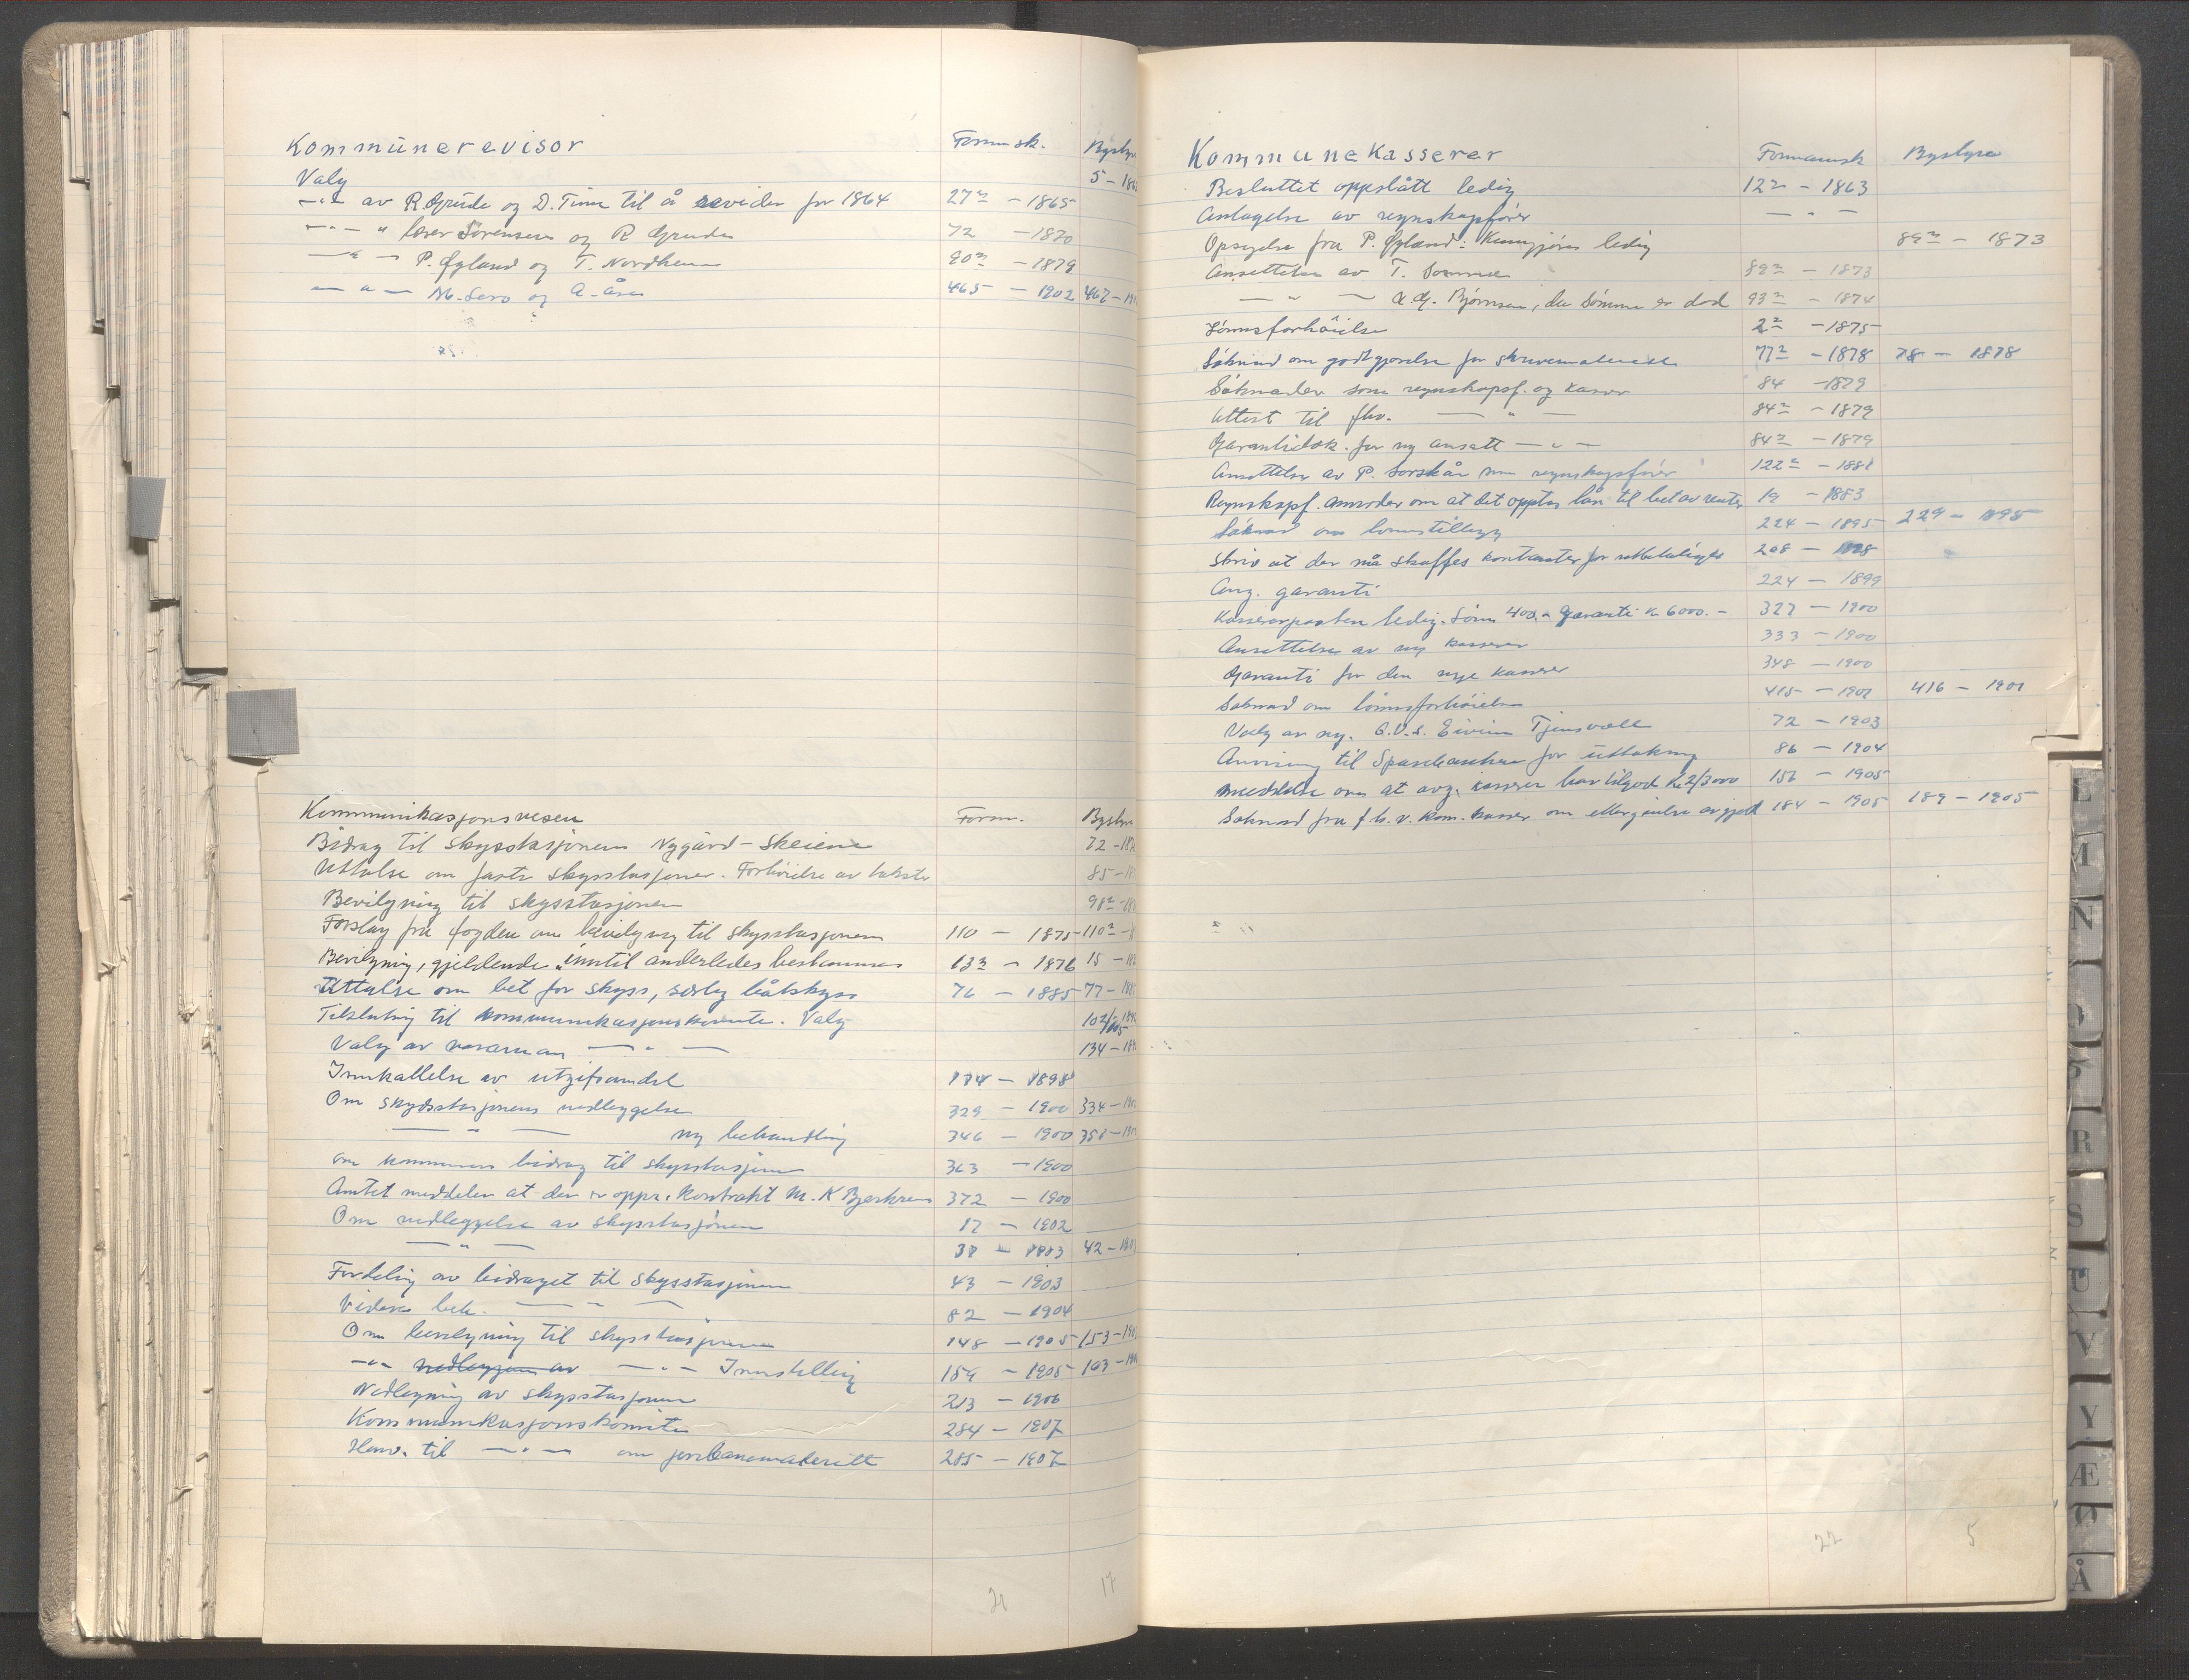 Kommunerevisor Formsk. Bystyre
Valg 5 - 186
-"- av R. Grude og D. Time til å revidere for 1864 27² - 1865
-"- " lærer Sørensen og R Grude 72 - 1870
-"- P. Øgland og T. Nordheim 90² - 1879
-"- M. og A. Åse 465 - 1902 467 - 190
Kommunikasjonsvesen Form. Bystyre
Bidrag til skysstasjonen Nygård - Skeiene 72 - 187
Uttalse om faste skysstasjoner. Forhöielse av takster 85 - 18
Bevilgning til skysstasjonen 98² - 18
Forslag fra fogden om bevilgning til skysstasjonen 110 - 1875 110² -
Bevilgning, gjeldende "inntil anderledes bestemmes 13² - 1876 15 - 18
Uttalse om bet for skyss, særlig båtskyss 76 - 1885 77 - 188
Tilslutning til kommunikasjonskomite. Valg 102/105 - 18
Valg av varaman -"- 134 - 18
Innkallelse av utgiftsandel 174 - 1898
Om skydsstasjonens nedleggelse 329 - 1900 334 - 190
-"- ny behandling 346 - 1900 358 - 190
om kommunens bidrag til skysstasjonen 363 - 1900
Amtet meddeler at der er oppr. kontrakt M. K Bjerkreim 372 - 1900
Om nedleggelse av skysstasjonen 17 - 1902
-"- 38 - 1903 42 - 190
Fordeling av bidraget til skysstasjonen 43 - 1903
Videre beh. -"- 82 - 1904
Om bevilgning til skysstasjonen 148 - 1905 153 - 190
-"- nedleggen av -"- Innstilling 159 - 1905 163 - 190
Nedlegning av skysstasjonen 213 - 1906
Kommunikasjonskomite 284 - 1907
Henv. til -"- om jernbanemateriell 285 - 1907
21 17
Kommunekasserer Formannsk Bystyre
Besluttet oppslått ledig 12² - 1863
Antagelse av regnskapsfører - " -
Opsigelse fra P. Øgland: Kunngjøres ledig 89² - 1873
Ansettelse av T. Sömme 89² - 1873
-"- A. G. Bjørnsen, da Sömme er död 93² - 1874
Lönnsforhöielse 2² - 1875
Söknad om godtgjørelse for skrivemateriell 77² - 1878 78 - 1878
Söknader som regnskapsf. og kasser 84 - 1879
Attest til fhv. -"- 84² - 1879
Garantidok. for ny ansatt -"- 84² - 1879
Ansettelse av P. som regnskapsfører 122² - 1881
Regnskapsf. anmoder om at det opptas lån til bet av renter 19 - 1883
Söknad om lönnstillegg 224 - 1895 229 - 1895
Skriv at der må skaffes kontrakter for utbetalinger 208 - 1898
Ang. garanti 224 - 1899
Kassererposten ledig. Lönn 400.- Garanti kr 6000.- 327 - 1900
Ansettelse av ny kasserer 333 - 1900
Garanti for den nye kasserer 348 - 1900
Söknad om lönnsforhöielse 415 - 1901 416 - 1901
Valg av ny. O.V.S. Eivinn Tjensvoll 72 - 1903
Anvisning til Sparebanken for uttakning 86 - 1904
Meddelelse om at avg. kasserer har tilgode kr 2/3000 156 - 1905
Söknad fra f.h.v. kom. kasser om ettergivelse av gjeld 184 - 1905 189 - 1905
22 5
L
M
N
O
P
R
S
U
V
Y
Æ
Ø
Å